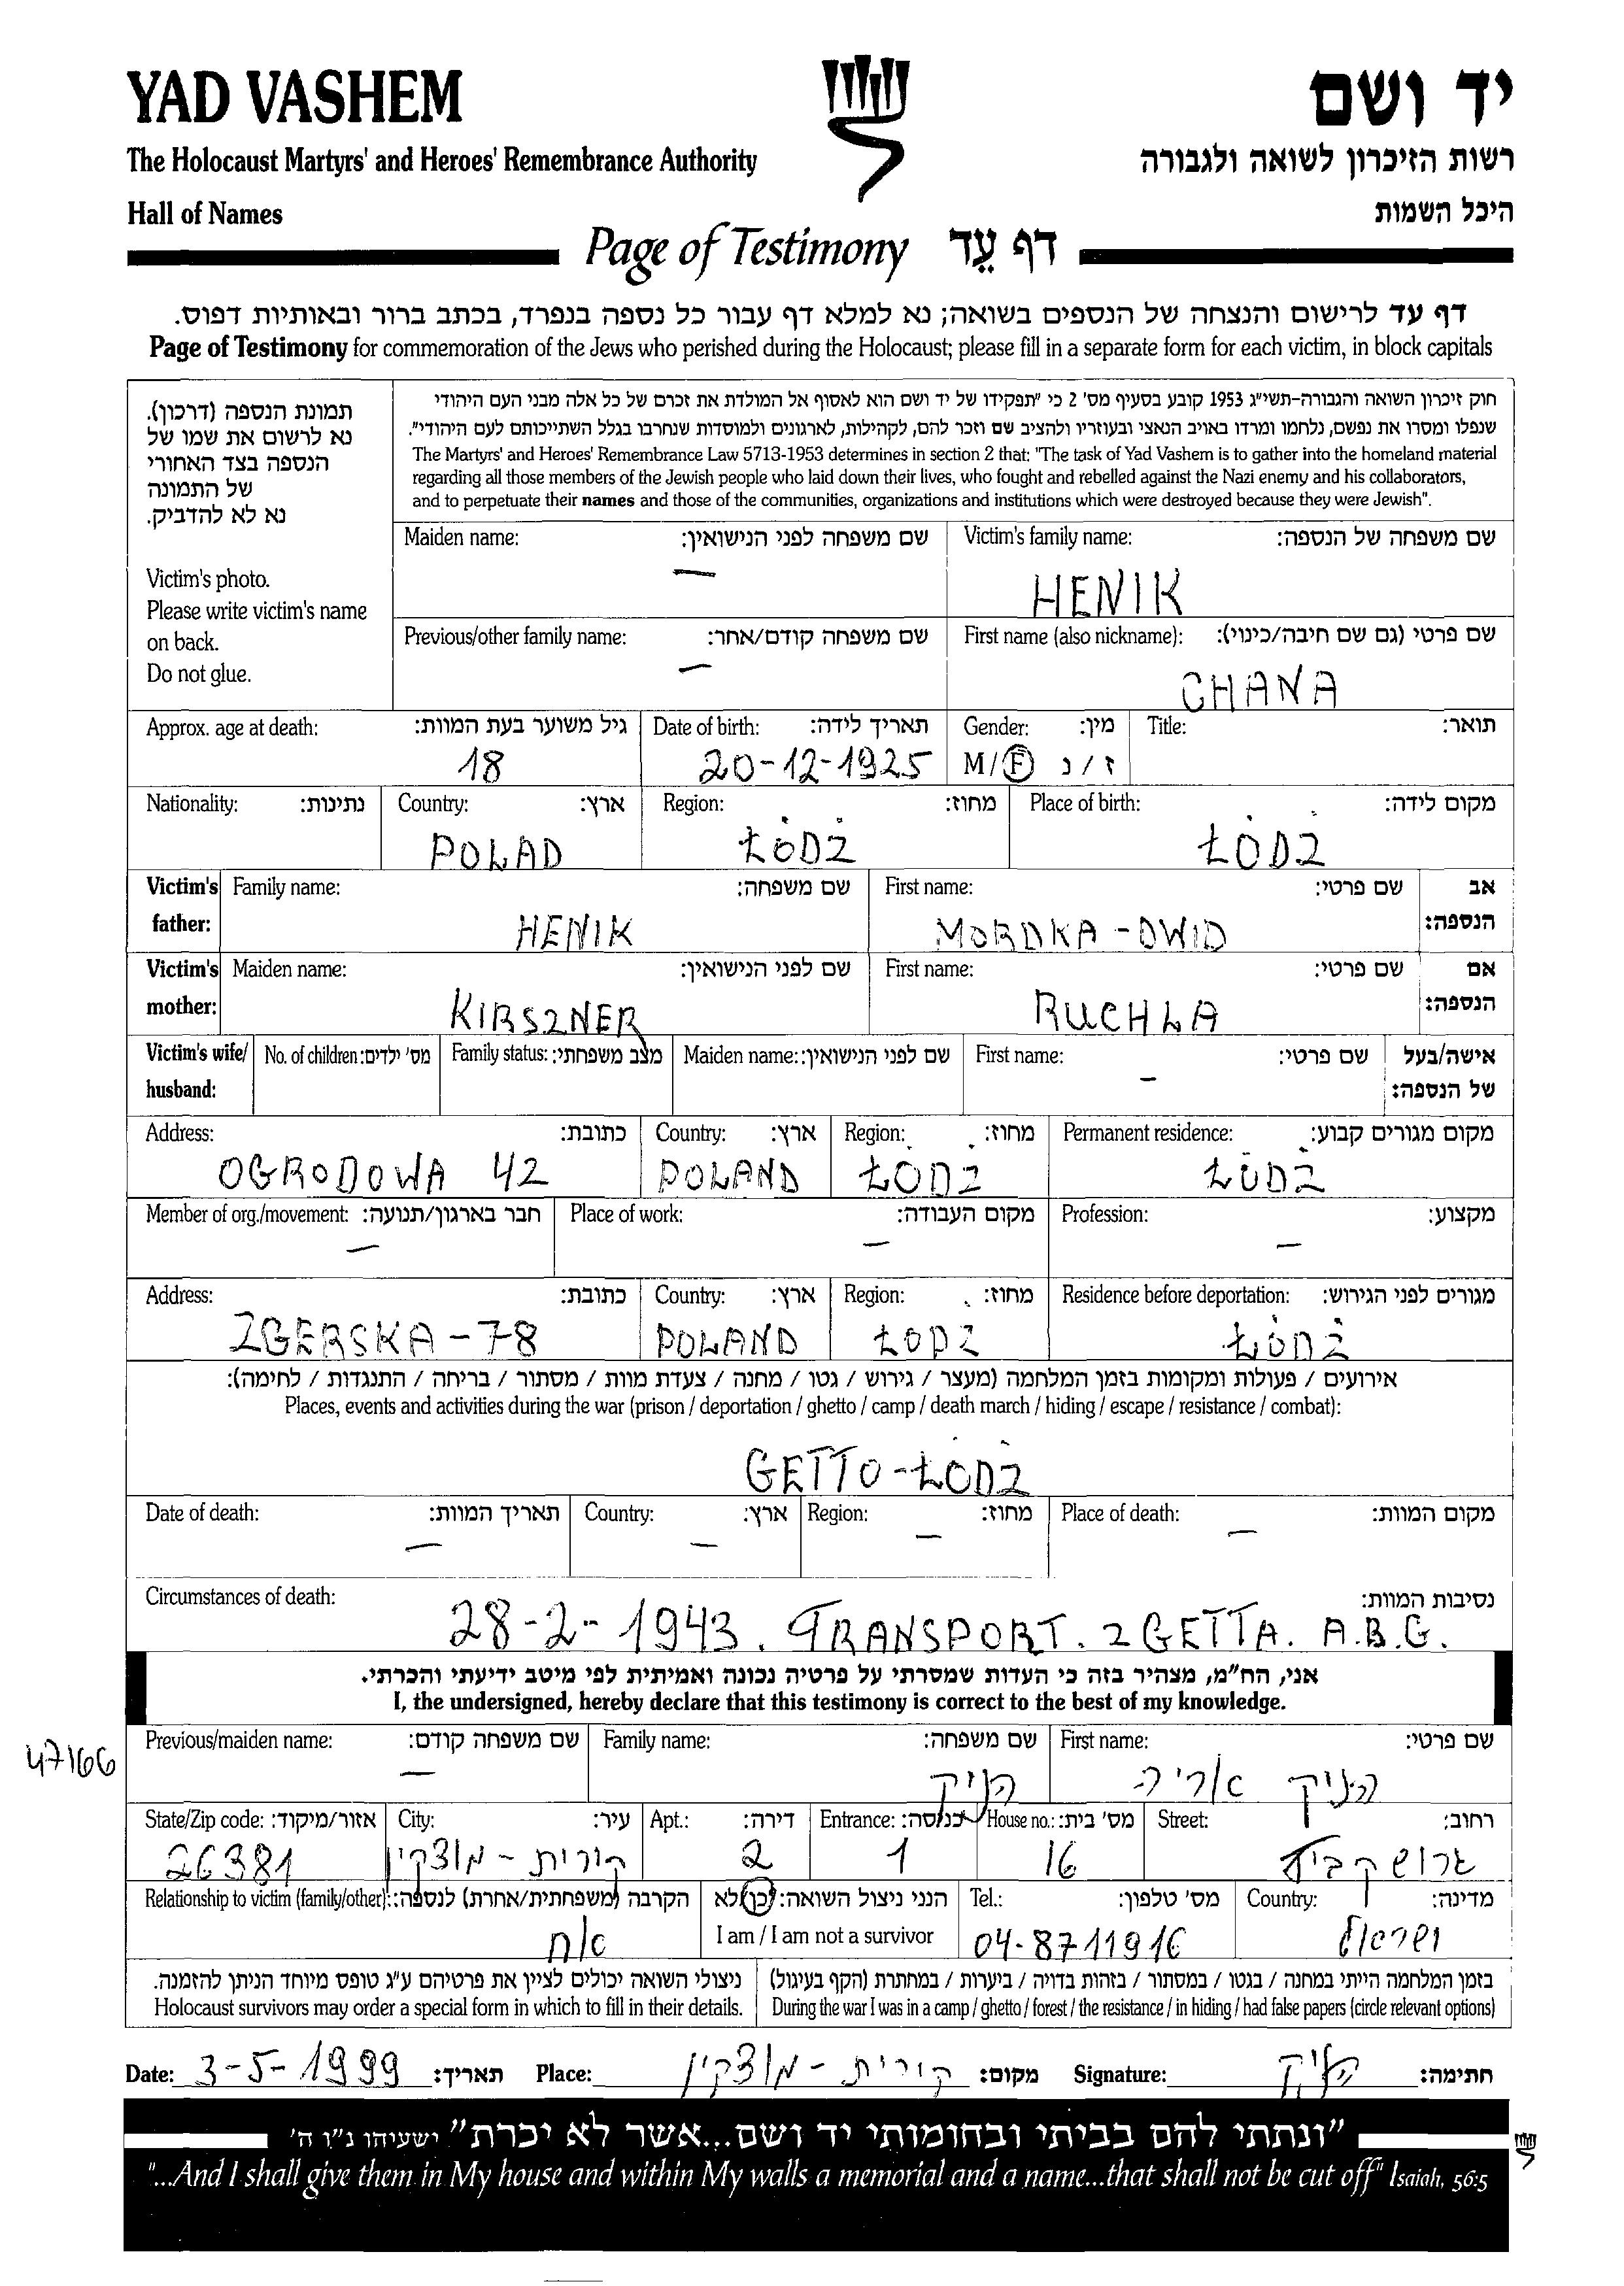 YAD VASHEM
יד ושם
The Holocaust Martyrs' and Heroes' Remembrance Authority
רשות הזיכרון לשואה ולגבורה
Hall of Names
היכל השמות
Page of Testimony דף עֵד
דף עד לרישום והנצחה של הנספים בשואה; נא למלא דף עבור כל נספה בנפרד, בכתב ברור ובאותיות דפוס.
Page of Testimony for commemoration of the Jews who perished during the Holocaust; please fill in a separate form for each victim, in block capitals
תמונת הנספה (דרכון).
נא לרשום את שמו של
הנספה בצד האחורי
של התמונה
נא לא להדביק.
Victim's photo.
Please write victim's name
on back.
Do not glue.
חוק זיכרון השואה והגבורה-תשי״ג 1953 קובע בסעיף מס' 2 כי "תפקידו של יד ושם הוא לאסוף אל המולדת את זכרם של כל אלה מבני העם היהודי
שנפלו ומסרו את נפשם, נלחמו ומרדו באויב הנאצי ובעוזריו ולהציב שם וזכר להם, לקהילות, לארגונים ולמוסדות שנחרבו בגלל השתייכותם לעם היהודי".
The Martyrs' and Heroes' Remembrance Law 5713-1953 determines in section 2 that: "The task of Yad Vashem is to gather into the homeland material
regarding all those members of the Jewish people who laid down their lives, who fought and rebelled against the Nazi enemy and his collaborators,
and to perpetuate their names and those of the communities, organizations and institutions which were destroyed because they were Jewish".
Maiden name: שם משפחה לפני הנישואין: Victim's family name: שם משפחה של הנספה:
— HENIK
Previous/other family name: שם משפחה קודם/אחר: First name (also nickname): שם פרטי (גם שם חיבה/כינוי):
— CHANA
Approx. age at death: גיל משוער בעת המוות: Date of birth: תאריך לידה: Gender: מין: Title: תואר:
18 20-12-1925 M/F ז/נ
Nationality: נתינות: Country: ארץ: Region: מחוז: Place of birth: מקום לידה:
POLAD ŁÓDŻ ŁÓDŻ
Victim's father: Family name: שם משפחה: First name: שם פרטי: אב הנספה:
HENIK MORDKA-DWID
Victim's mother: Maiden name: שם לפני הנישואין: First name: שם פרטי: אם הנספה:
KIRSZNER RUCHLA
Victim's wife/ husband: No. of children: מס' ילדים: Family status: מצב משפחתי: Maiden name: שם לפני הנישואין: First name: שם פרטי: אישה/בעל של הנספה:
—
Address: כתובת: Country: ארץ: Region: מחוז: Permanent residence: מקום מגורים קבוע:
OGRODOWA 42 POLAND ŁÓDŻ ŁÓDŻ
Member of org./movement: חבר בארגון/תנועה: Place of work: מקום העבודה: Profession: מקצוע:
— — —
Address: כתובת: Country: ארץ: Region: מחוז: Residence before deportation: מגורים לפני הגירוש:
ZGERSKA-78 POLAND ŁODZ ŁÓDŻ
אירועים / פעולות ומקומות בזמן המלחמה (מעצר / גירוש / גטו / מחנה / צעדת מוות / מסתור / בריחה / התנגדות / לחימה):
Places, events and activities during the war (prison / deportation / ghetto / camp / death march / hiding / escape / resistance / combat):
GETTO-ŁÓDŻ
Date of death: תאריך המוות: Country: ארץ: Region: מחוז: Place of death: מקום המוות:
— — — —
Circumstances of death: נסיבות המוות:
28-2-1943. TRANSPORT. Z GETTA. A.B.G.
אני, הח״מ, מצהיר בזה כי העדות שמסרתי על פרטיה נכונה ואמיתית לפי מיטב ידיעתי והכרתי.
I, the undersigned, hereby declare that this testimony is correct to the best of my knowledge.
47166
Previous/maiden name: שם משפחה קודם: Family name: שם משפחה: First name: שם פרטי:
— הניק הניק אריה
State/Zip code: אזור/מיקוד: City: עיר: Apt.: דירה: Entrance: כניסה: House no.: מס' בית: Street: רחוב:
26381 קורית-מוצקין 2 1 16
Relationship to victim (family/other): הקרבה (משפחתית/אחרת) לנספה: הנני ניצול השואה: כן/לא Tel.: מס' טלפון: Country: מדינה:
אח I am / I am not a survivor 04-8711916 ישראל
ניצולי השואה יכולים לציין את פרטיהם ע״ג טופס מיוחד הניתן להזמנה.
Holocaust survivors may order a special form in which to fill in their details.
בזמן המלחמה הייתי במחנה / בגטו / במסתור / בזהות בדויה / ביערות / במחתרת (הקף בעיגול)
During the war I was in a camp / ghetto / forest / the resistance / in hiding / had false papers (circle relevant options)
Date: 3-5-1999 תאריך: Place: קורית-מוצקין מקום: Signature: הניק חתימה:
"ונתתי להם בביתי ובחומותי יד ושם...אשר לא יכרת" ישעיהו נ״ו ה'
"...And I shall give them in My house and within My walls a memorial and a name...that shall not be cut off" Isaiah, 56:5